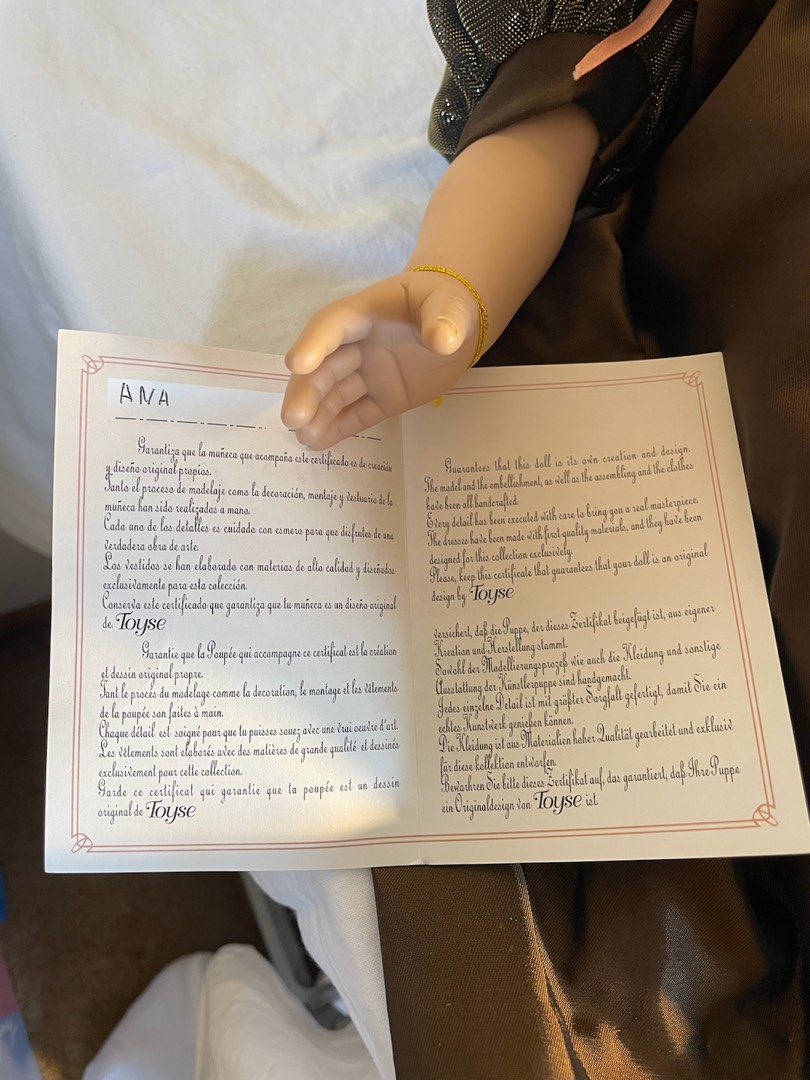 ANA
Garantiza que la muñeca que acompaña este certificado es de creación
y diseño original propios.
Tanto el proceso de modelaje como la decoración, montaje y vestuario de la
muñeca han sido realizados a mano.
Cada uno de los detalles es cuidado con esmero para que disfrutes de una
verdadera obra de arte.
Los vestidos se han elaborado con materias de alta calidad y diseñados
exclusivamente para esta colección.
Conserva este certificado que garantiza que tu muñeca es un diseño original
de Toyse
Garantie que la Poupée qui accompagne ce certificat est la création
et dessin original propre.
Tant le procès du modelage comme la decoration, le montage et les vêtements
de la poupée son faites à main.
Chaque détail est soigné pour que tu puisses souez avec une vrai oeuvre d'art.
Les vêtements sont elaborés avec des matières de grande qualité et dessinés
exclusivement pour cette collection.
Garde ce certificat qui garantie que ta poupée est un dessin
original de Toyse
Guarantees that this doll is its own creation and design.
The model and the embellishment, as well as the assembling and the clothes
have been all handcrafted.
Every detail has been executed with care to bring you a real masterpiece.
The dresses have been made with first quality materials, and they have been
designed for this collection exclusively.
Please, keep this certificate that guarantees that your doll is an original
design by Toyse
versichert, daß die Puppe, der dieses Zertifikat beigefügt ist, aus eigener
Kreation und Herstellung stammt.
Sowohl der Modellierungsprozeß wie auch die Kleidung und sonstige
Ausstattung der Künstlerpuppe sind handgemacht.
Jedes einzelne Detail ist mit größter Sorgfalt gefertigt, damit Sie ein
echtes Kunstwerk genießen können.
Die Kleidung ist aus Materialien hoher Qualität gearbeitet und exklusiv
für diese kollektion entworfen.
Bewahren Sie bitte dieses Zertifikat auf, das garantiert, daß Ihre Puppe
ein Originaldesign von Toyse ist.